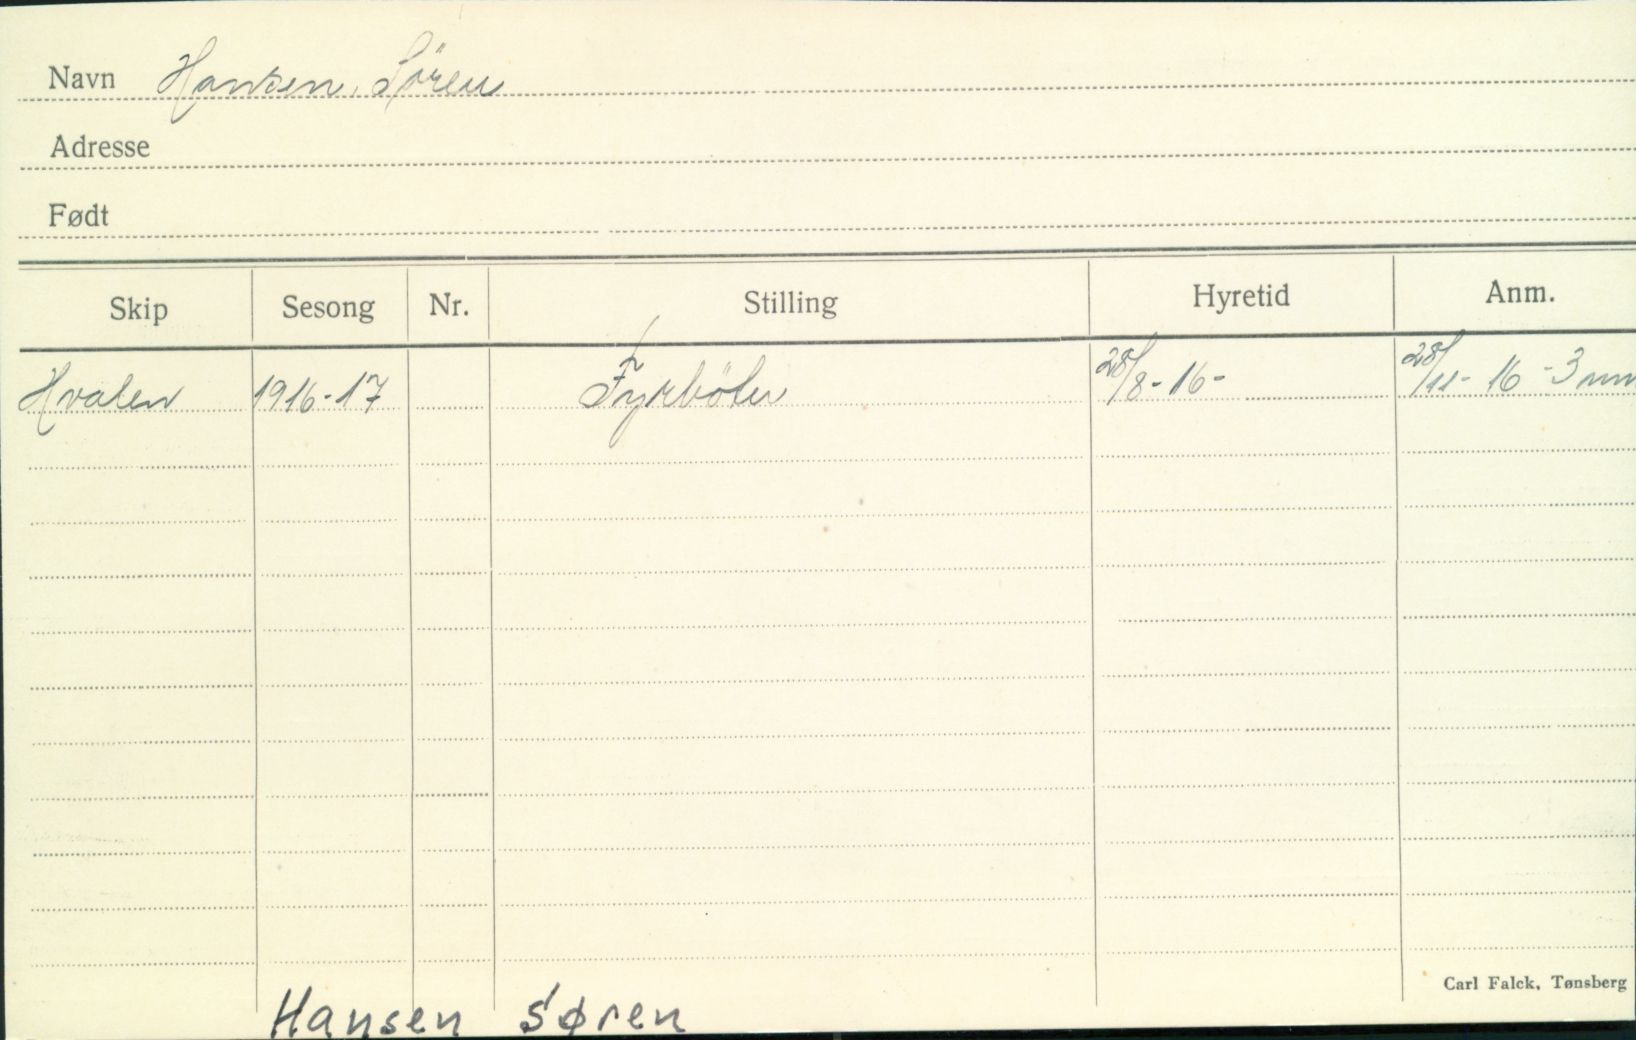 Navn Hansen, Sören
Adresse
Født
Skip Sesong Nr. Stilling Hyretid Anm.
Hvalen 1916-17 Fyrböter 28/8-16- 28/11-16 -3 mn
Carl Falck, Tønsberg
Hansen Søren